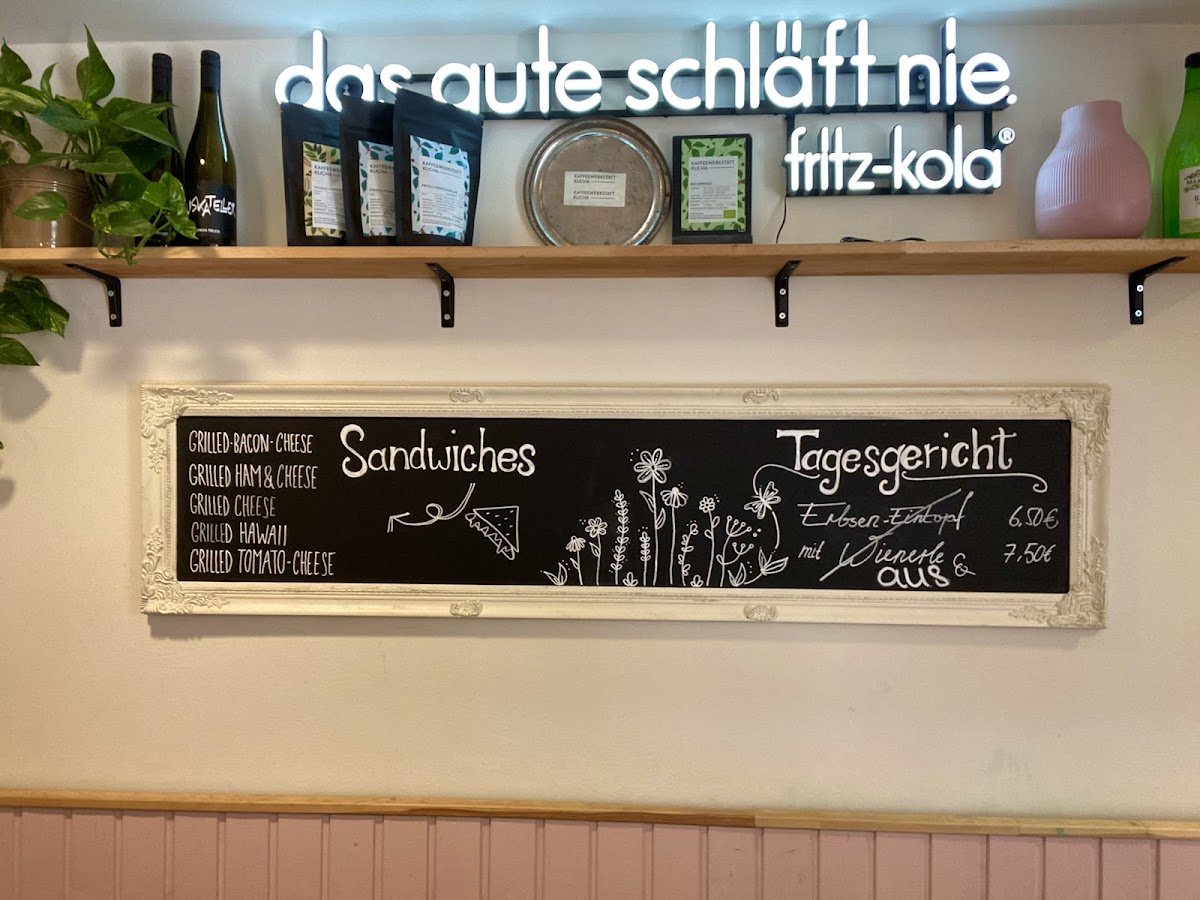 das gute schläft nie.
fritz-kola®
KAFFEEWERKSTATT
KUCHA
KAFFEEWERKSTATT
KUCHA
KAFFEEWERKSTATT
KUCHA
KAFFEEWERKSTATT
KUCHA
KAFFEEWERKSTATT
KUCHA
GRILLED-BACON-CHEESE
GRILLED HAM & CHEESE
GRILLED CHEESE
GRILLED HAWAII
GRILLED TOMATO-CHEESE
Sandwiches
Tagesgericht
Erbsen-Eintopf 6,50€
mit Wienerle & 7,50€
aus